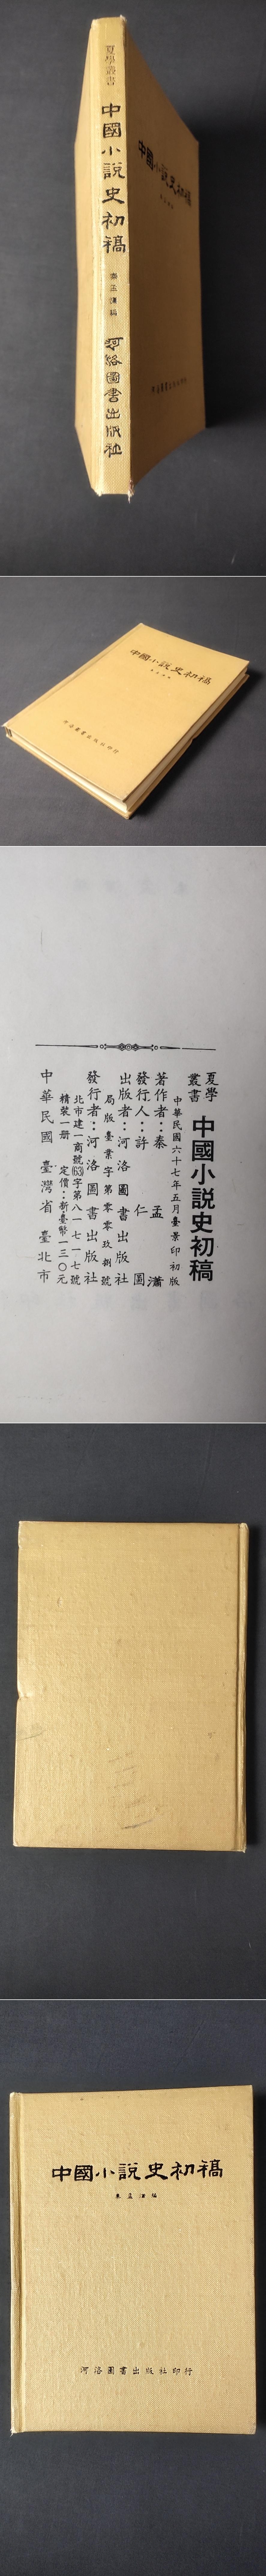 夏學叢書
中國小說史初稿
秦孟瀟編
河洛圖書出版社
中國小說史初稿
中國小說史初稿
河洛圖書出版社印行
夏學叢書
中國小說史初稿
中華民國六十七年五月臺景印初版
著作者：秦孟瀟
發行人：許仁圖
出版者：河洛圖書出版社
局版臺業字第零零玖捌號
發行者：河洛圖書出版社
北市建一商號(63)字第八一七一七號
精裝一册 定價：新臺幣一三〇元
中華民國 臺灣省 臺北市
中國小說史初稿
秦孟瀟編
河洛圖書出版社印行